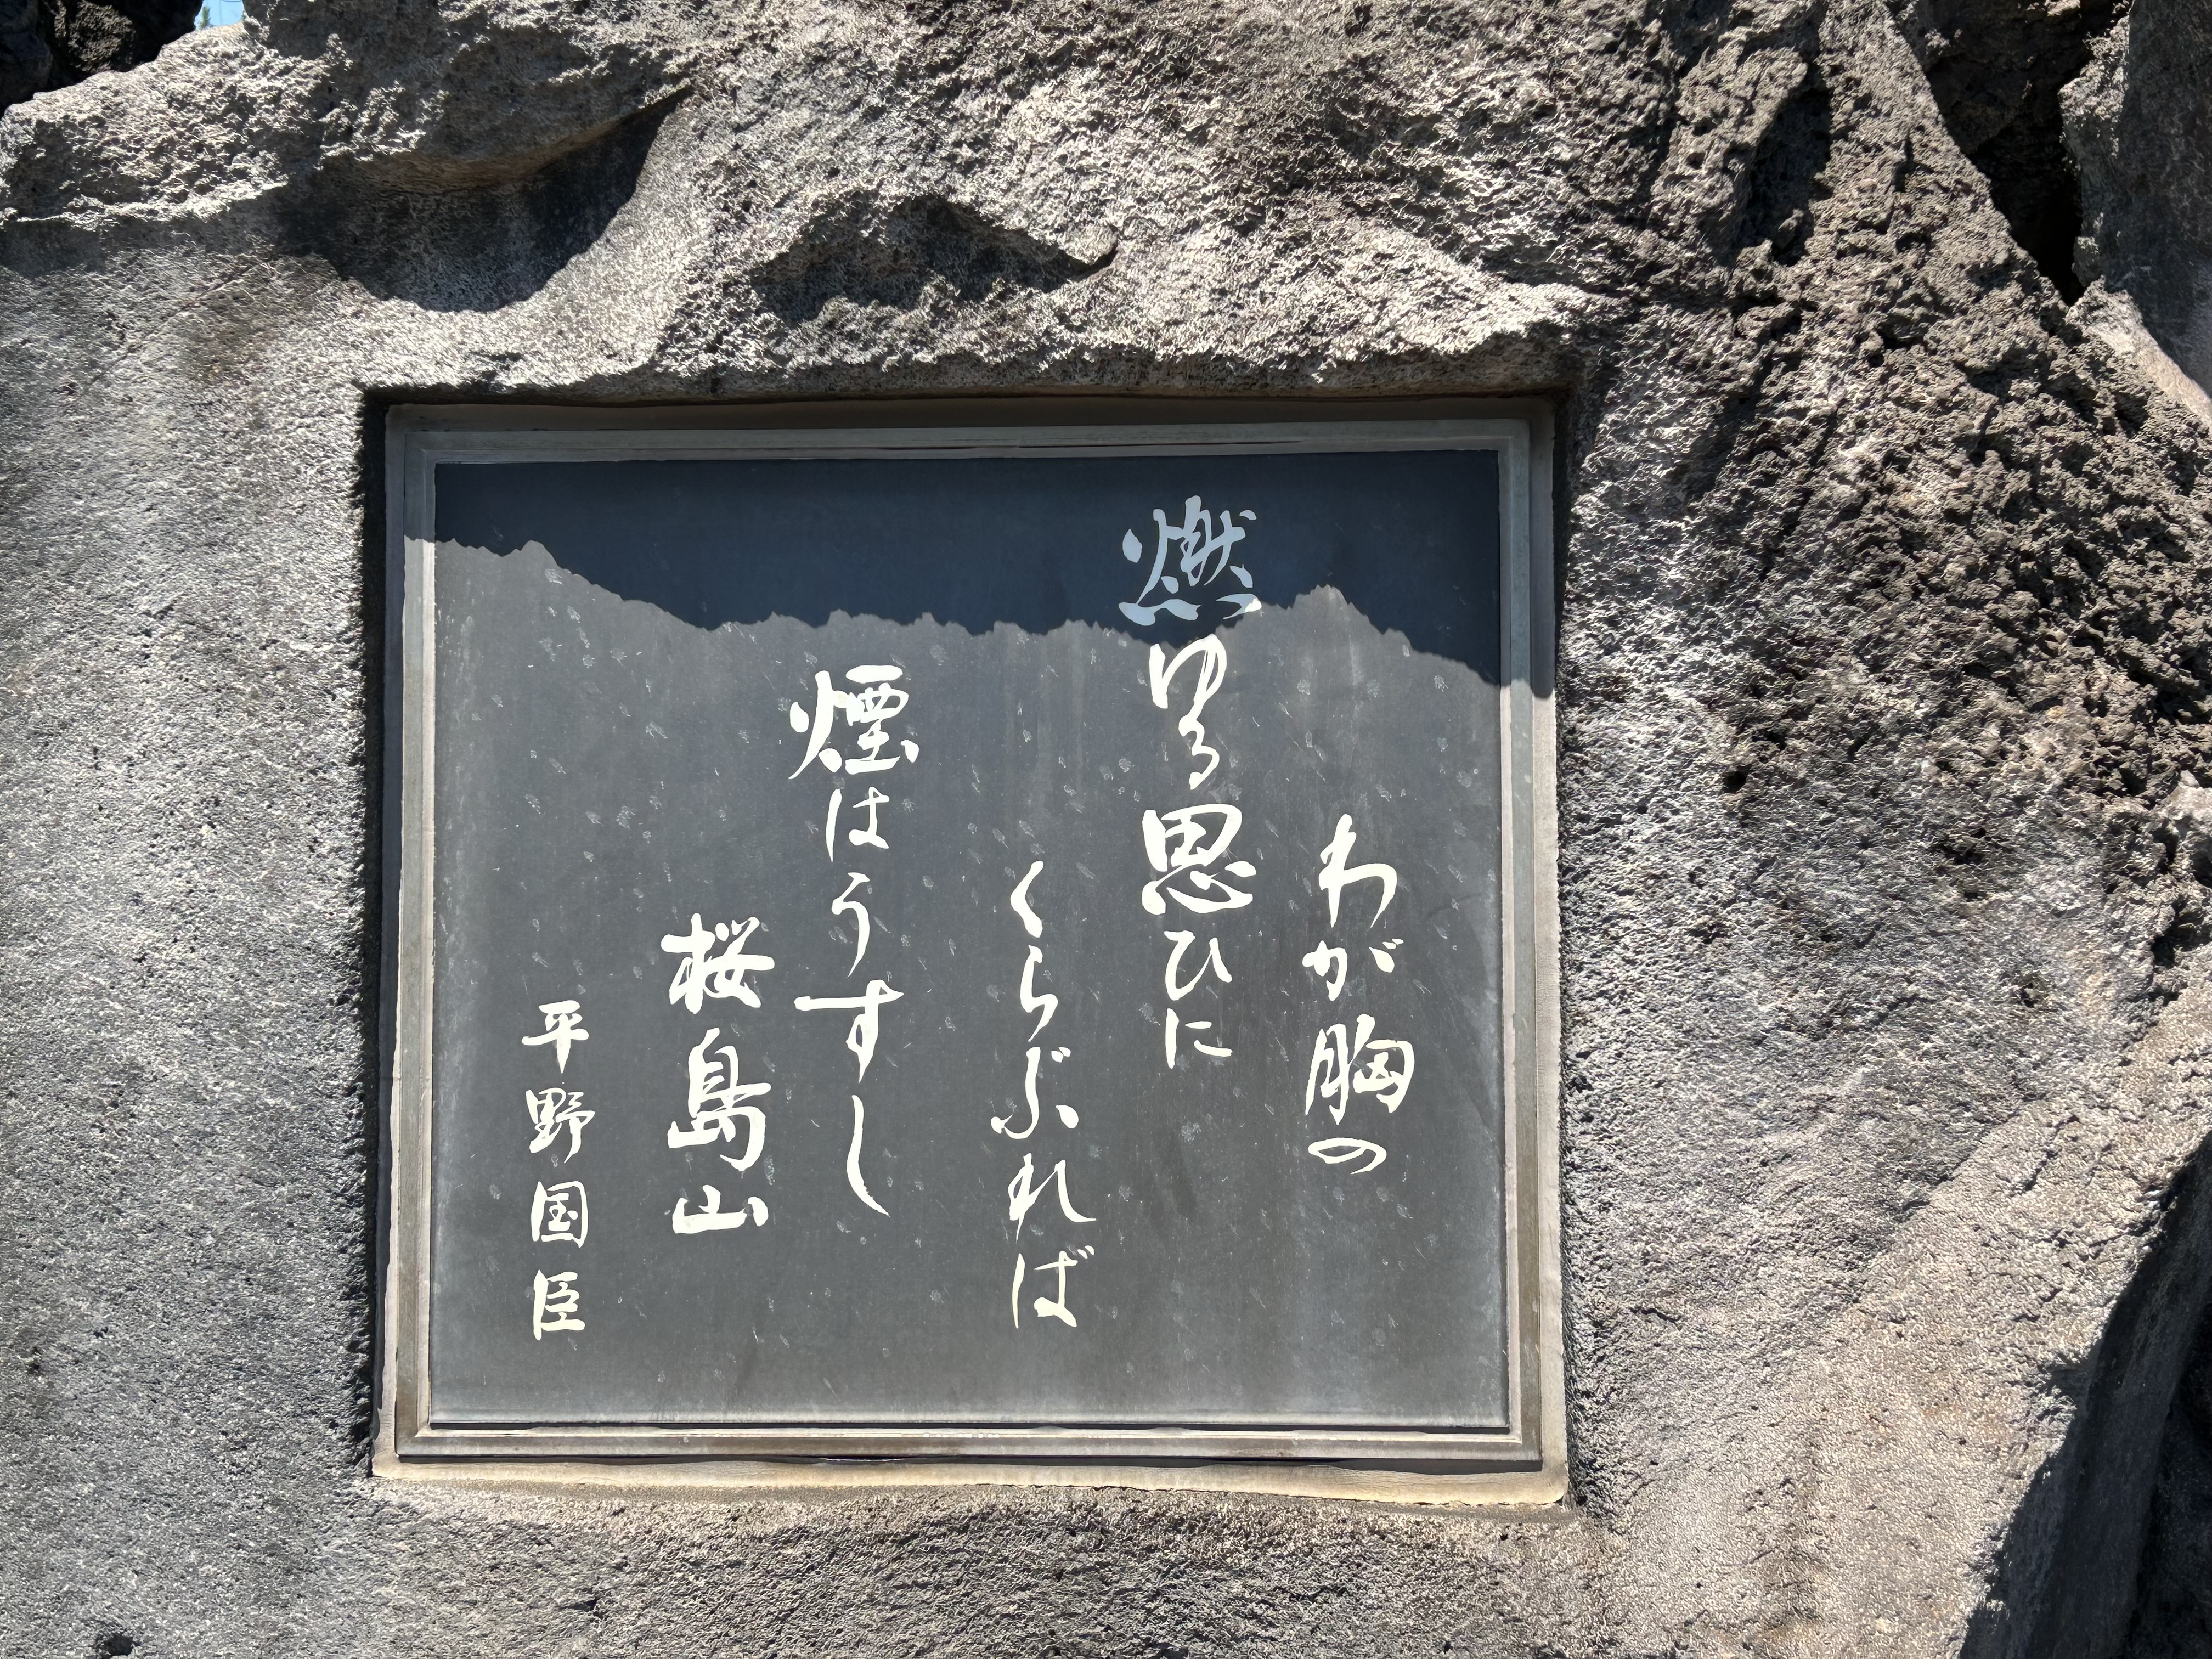 わが胸の
燃ゆる思ひに
くらぶれば
煙はうすし
桜島山
平野国臣